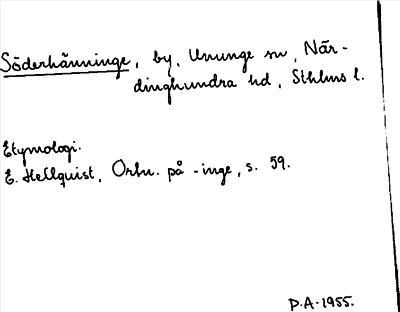 Söderhänninge, by, Ununge sn, När-
dinghundra hd, Sthlms l.
Etymologi.
E. Hellquist, Ortn. på -inge, s. 59.
P.A. 1955.